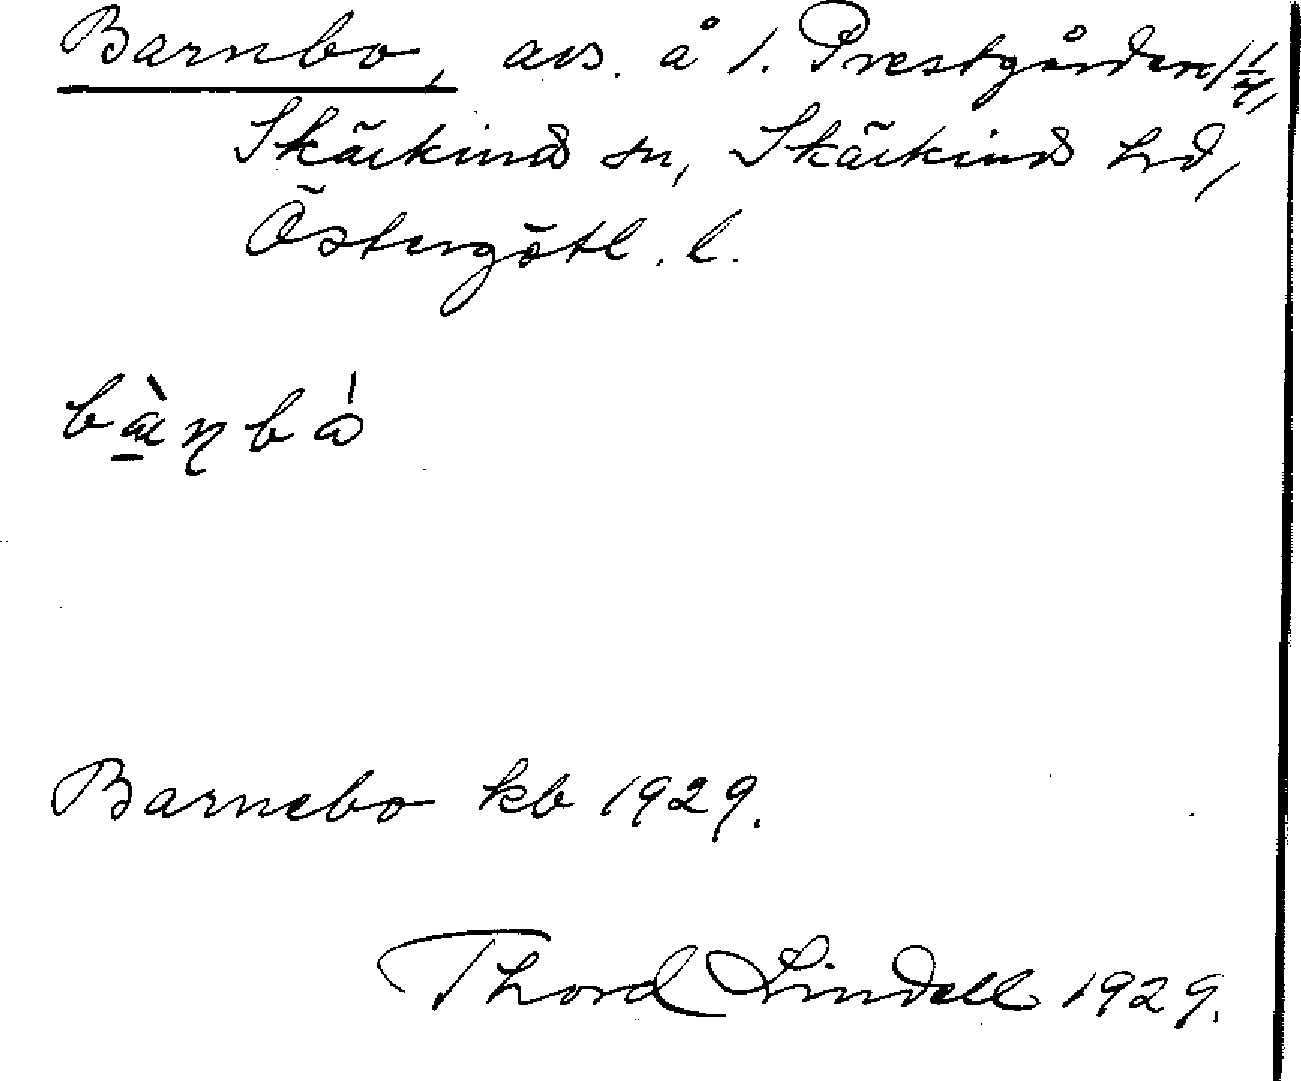 Barnbo, avs. å 1. Prestgården 1 1/4,
Skärkinds sn, Skärkinds hd,
Östergötl. l.
Barnebo kb 1929.
Thord Lindell 1929.